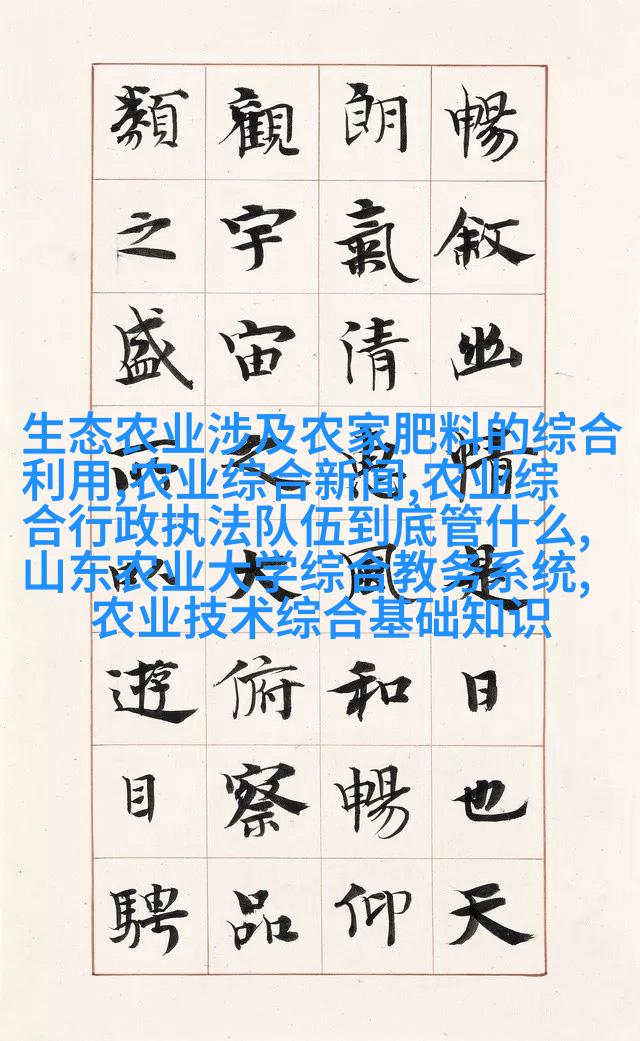 暢敘幽情是日也天
朗氣清惠風和暢仰
觀宇宙之大俯察品
類之盛所以遊目騁
生态农业涉及农家肥料的综合
利用,农业综合新闻,农业综
合行政执法队伍到底管什么,
山东农业大学综合教务系统,
农业技术综合基础知识